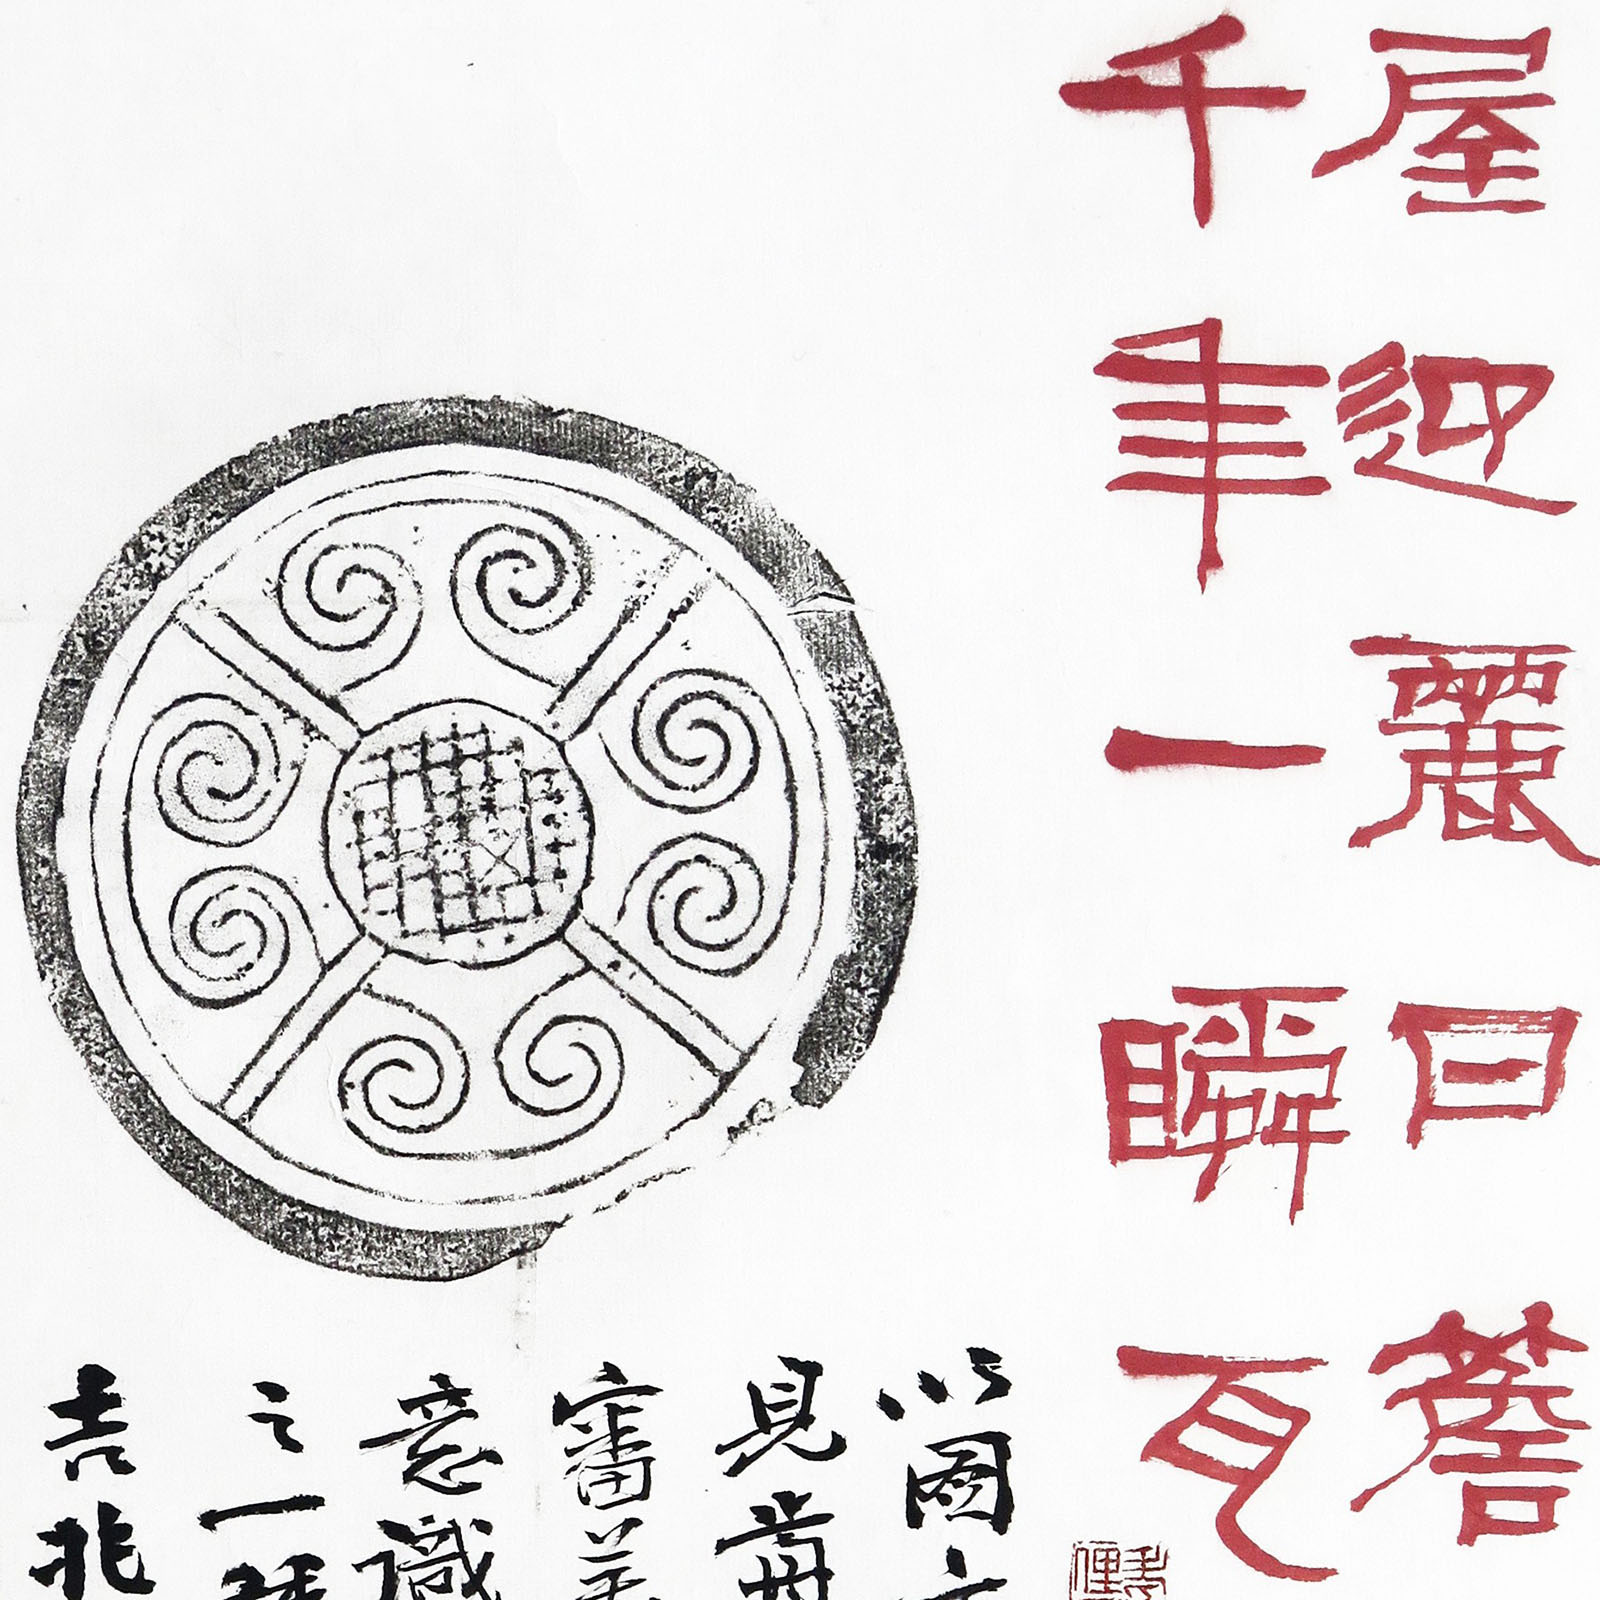 屋迎麗日簷
千年一瞬瓦
以圖
見
審美
意識
之一
吉兆